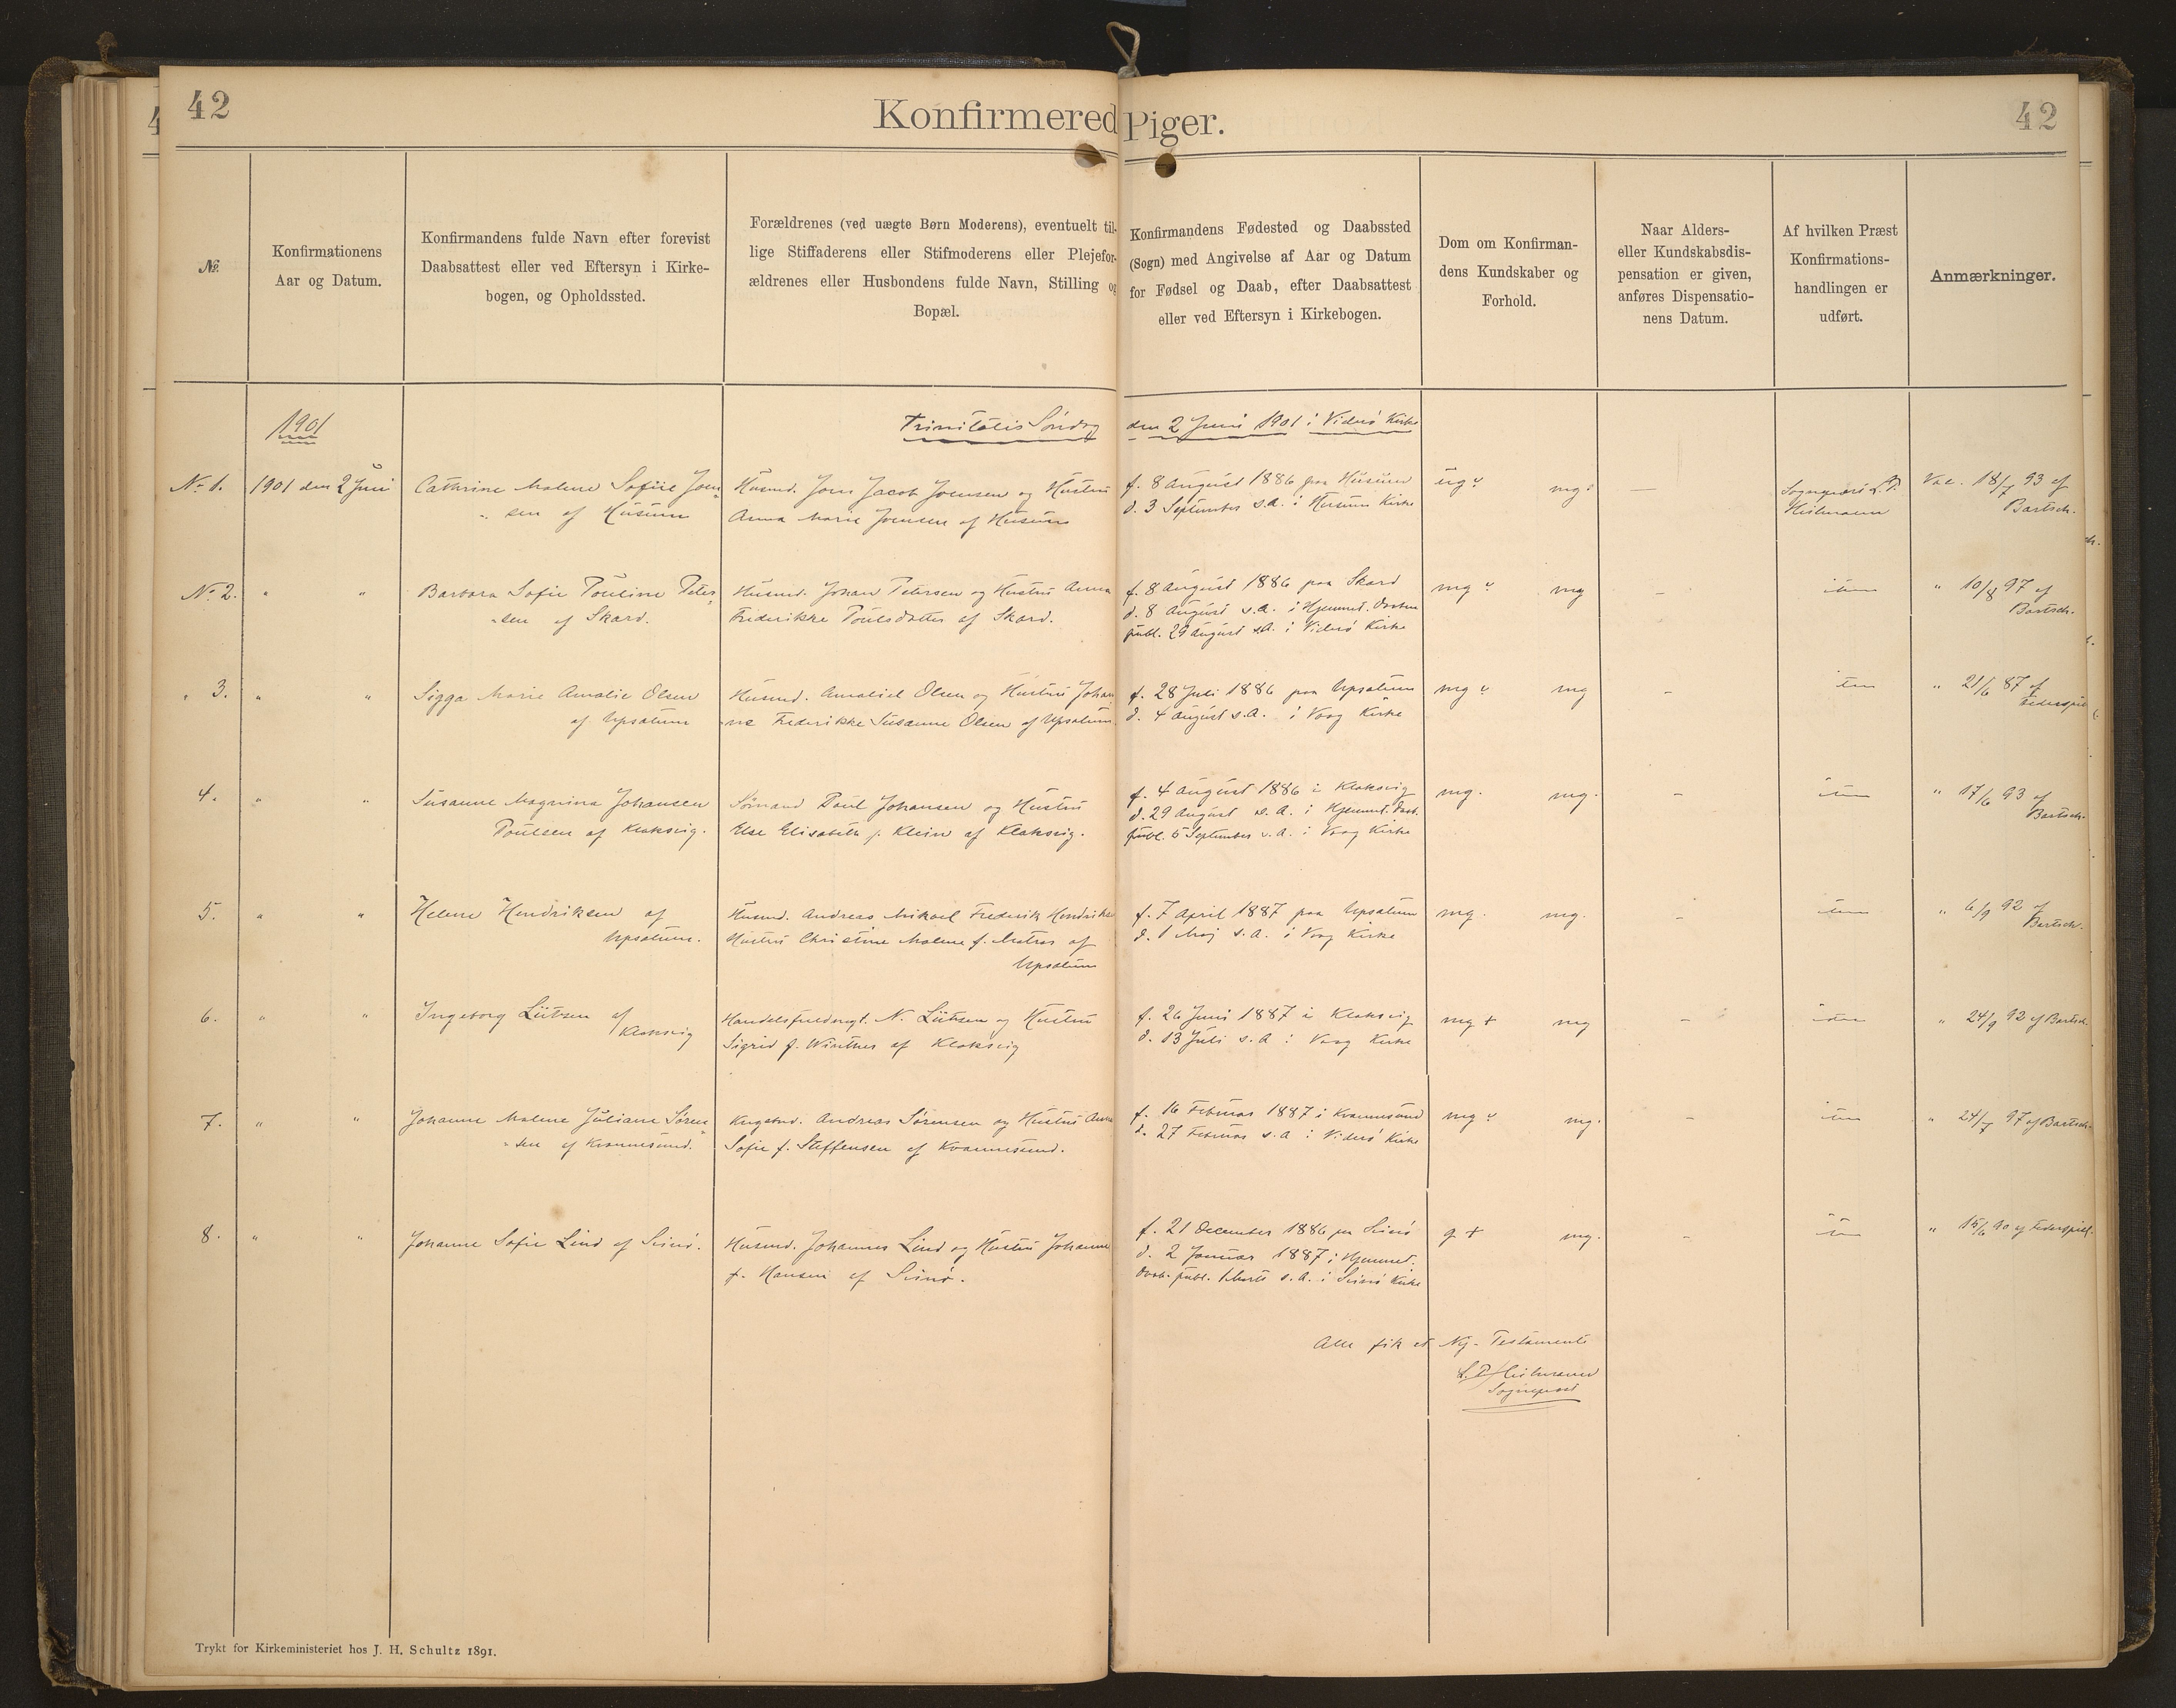 42
Konfirmered Piger.
42
№
Konfirmationens
Aar og Datum.
Konfirmandens fulde Navn efter forevist
Daabsattest eller ved Eftersyn i Kirke-
bogen, og Opholdssted.
Forældrenes (ved uægte Børn Moderens), eventuelt til-
lige Stiffaderens eller Stifmoderens eller Plejefor-
ældrenes eller Husbondens fulde Navn, Stilling og
Bopæl.
Konfirmandens Fødested og Daabssted
(Sogn) med Angivelse af Aar og Datum
for Fødsel og Daab, efter Daabsattest
eller ved Eftersyn i Kirkebogen.
Dom om Konfirman-
dens Kundskaber og
Forhold.
Naar Alders-
eller Kundskabsdis-
pensation er given,
anføres Dispensatio-
nens Datum.
Af hvilken Præst
Konfirmations-
handlingen er
udført.
Anmærkninger.
1901
Trinitatis Søndag den 2 Juni 1901 i Viderø Kirke
No 1.
1901 den 2 Juni
Cathrine Malene Sofie Joen-
sen af Husum
Husmd. Joen Jacob Joensen og Hustru
Anna Marie Joensen af Husum
f. 8 August 1886 paa Husum
d. 3 September s.A. i Husum Kirke
ug v
mg
—
Sognepræst L. P.
Heilmann
Vac. 18/7 93 af
Bartsch.
No 2.
" "
Barbara Sofie Pouline Peter-
sen af Skard.
Husmd. Johan Petersen og Hustru Anna
Frederikke Poulsdatter af Skard.
f. 8 August 1886 paa Skard
d. 8 August s.A. i Hjemmet. Daaben
publ. 29 August s.A. i Viderø Kirke
mg v
mg
—
item
" 10/8 97 af
Bartsch.
" 3.
" "
Sigga Marie Amalie Olsen
af Upsalum
Husmd. Amaliel Olsen og Hustru Johan-
ne Frederikke Susanne Olsen af Upsalum
f. 28 Juli 1886 paa Upsalum
d. 4 August s.A. i Vaag Kirke
mg v
mg
—
item
" 21/6 87 af
Federspiel
4.
" "
Susanne Magnina Johansen
Poulsen af Klaksvig.
Sømand Poul Johansen og Hustru
Else Elisabeth f. Klein af Klaksvig.
f. 4 August 1886 i Klaksvig
d. 29 August s.A. i Hjemmet. Daab.
publ. 5 September s.A. i Vaag Kirke
mg.
mg.
—
item
" 17/6 93 af
Bartsch.
5.
" "
Helene Hendriksen af
Upsalum.
Husmd. Andreas Mikael Frederik Hendriksen
Hustru Christine Malene f. Matras af
Upsalum
f. 7 April 1887 paa Upsalum
d. 1 Maj s.A. i Vaag Kirke
mg.
mg.
—
item
" 6/9 92 af
Bartsch.
6.
" "
Ingeborg Lützen af
Klaksvig
Handelsfuldmgt. N. Lützen og Hustru
Sigrid f. Winther af Klaksvig
f. 26 Juni 1887 i Klaksvig
d. 13 Juli s.A i Vaag Kirke
mg +
mg
—
item
" 24/9 92 af Bartsch.
7.
" "
Johanne Malene Juliane Søren-
sen af Kvannesund.
Kngsbnd. Andreas Sørensen og Hustru Anna
Sofie f. Steffensen af Kvannesund.
f. 16 Februar 1887 i Kvannesund
d. 27 Februar s.A i Viderø Kirke
mg v
mg.
—
item
" 24/7 97 af Bartsch.
8.
" "
Johanne Sofie Lind af Svinø.
Husmd. Johannes Lind og Hustru Johanne
f. Hansen af Svinø.
f. 21 December 1886 paa Svinø
d. 2 Januar 1887 i Hjemmet.
Daab. publ. 1 Marts s.A. i Svinø Kirke
g +
mg.
—
item
" 15/6 90 af Federspiel.
Alle fik et Ny-Testamente
L. P. Heilmann
Sognepræst
Trykt for Kirkeministeriet hos J. H. Schultz 1891.